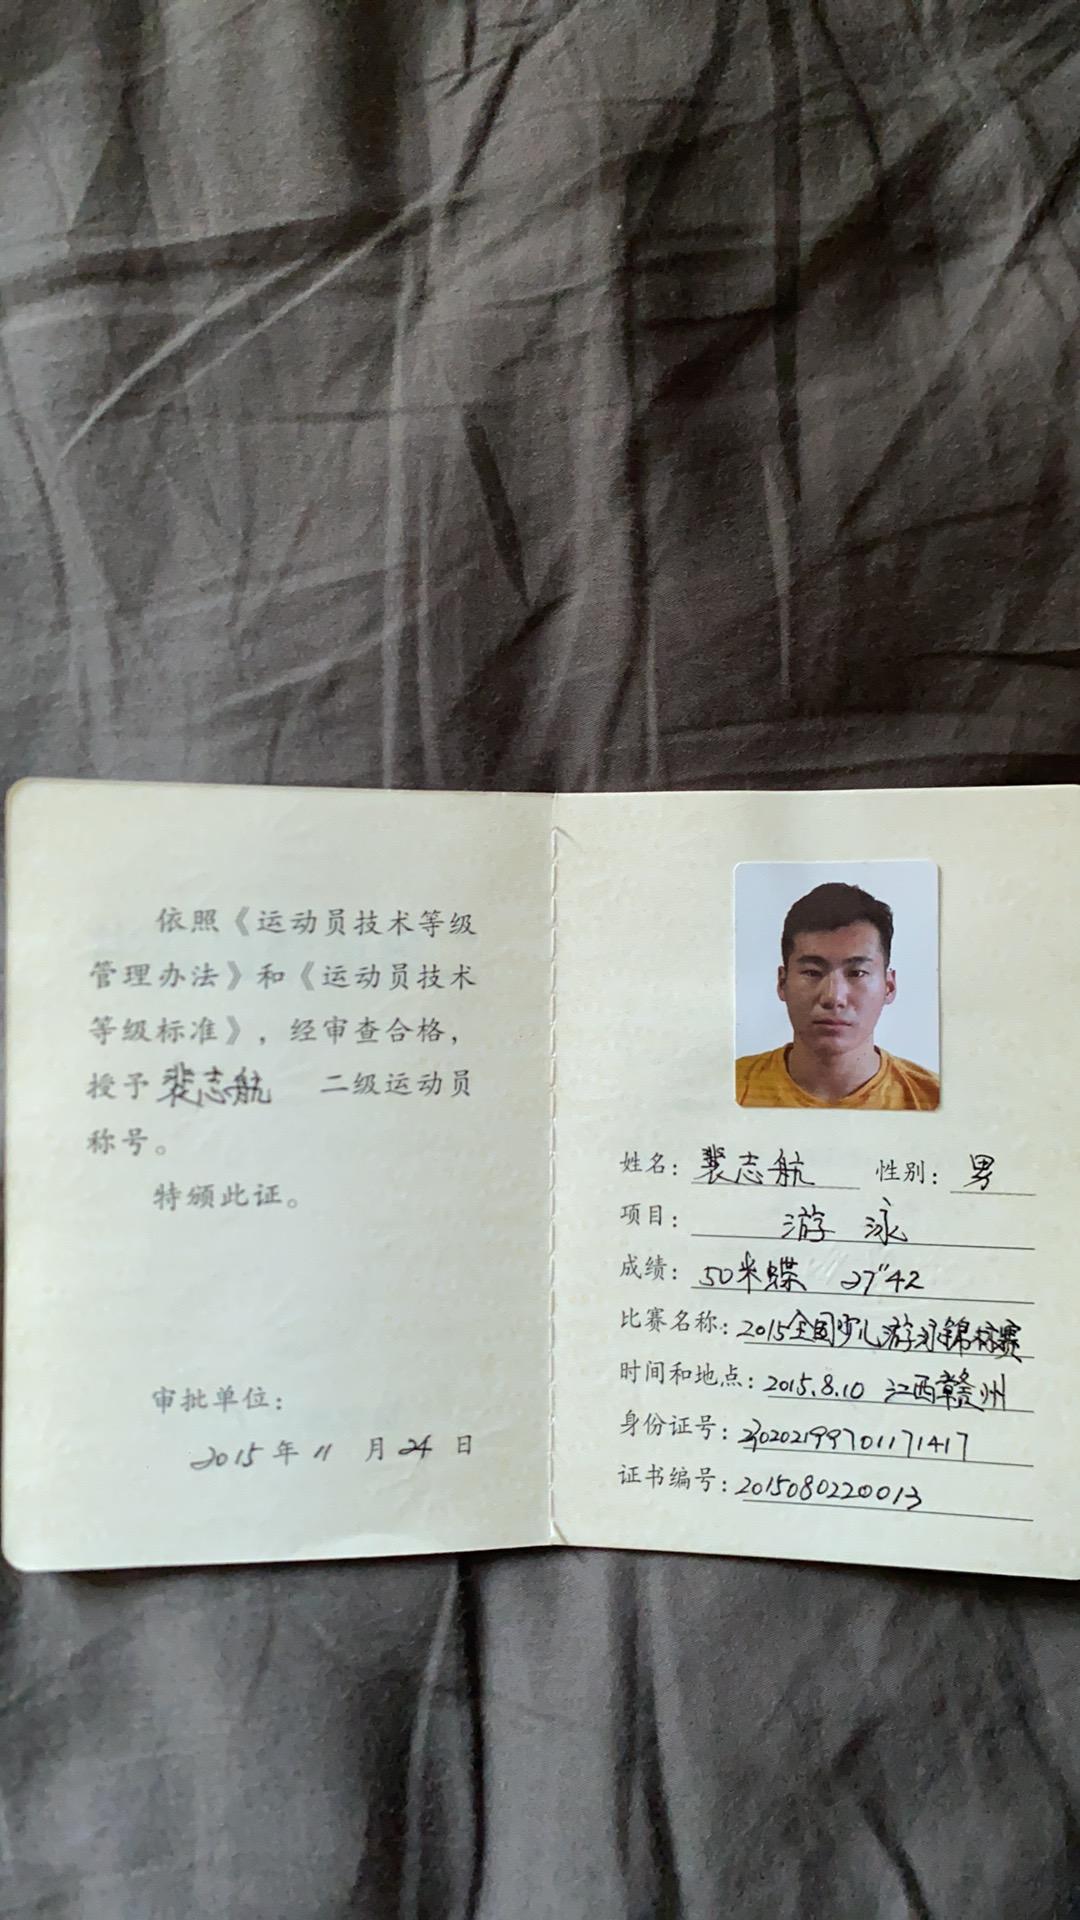 依照《运动员技术等级
管理办法》和《运动员技术
等级标准》，经审查合格，
授予裴志航 二级运动员
称号。
特颁此证。
审批单位：
2015年11月24日
姓名：裴志航 性别：男
项目：游泳
成绩：50米蝶 27"42
比赛名称：2015全国少儿游泳锦标赛
时间和地点：2015.8.10 江西赣州
身份证号：230202199701171417
证书编号：2015080220013